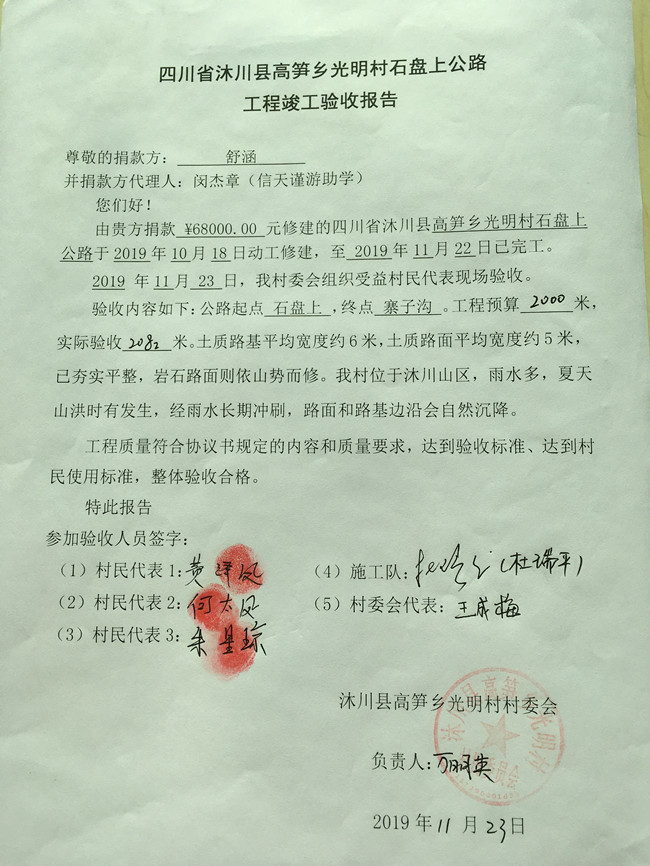 四川省沐川县高笋乡光明村石盘上公路
工程竣工验收报告
尊敬的捐款方：舒涵
并捐款方代理人：闵杰章（信天谨游助学）
您们好！
由贵方捐款 ¥68000.00 元修建的四川省沐川县高笋乡光明村石盘上
公路于2019年10月18日动工修建，至 2019年11月22日已完工。
2019 年11月 23 日，我村委会组织受益村民代表现场验收。
验收内容如下：公路起点 石盘上 ，终点 寨子沟 。工程预算 2000 米，
实际验收 2082 米。土质路基平均宽度约6米，土质路面平均宽度约5米，
已夯实平整，岩石路面则依山势而修。我村位于沐川山区，雨水多，夏天
山洪时有发生，经雨水长期冲刷，路面和路基边沿会自然沉降。
工程质量符合协议书规定的内容和质量要求，达到验收标准、达到村
民使用标准，整体验收合格。
特此报告
参加验收人员签字：
（1）村民代表1：黄泽凤
（4）施工队：（杜瑞平）
（2）村民代表2：何太凤
（5）村委会代表：王成梅
（3）村民代表3：
沐川县高笋乡光明村村委会
负责人：
2019年11月23日